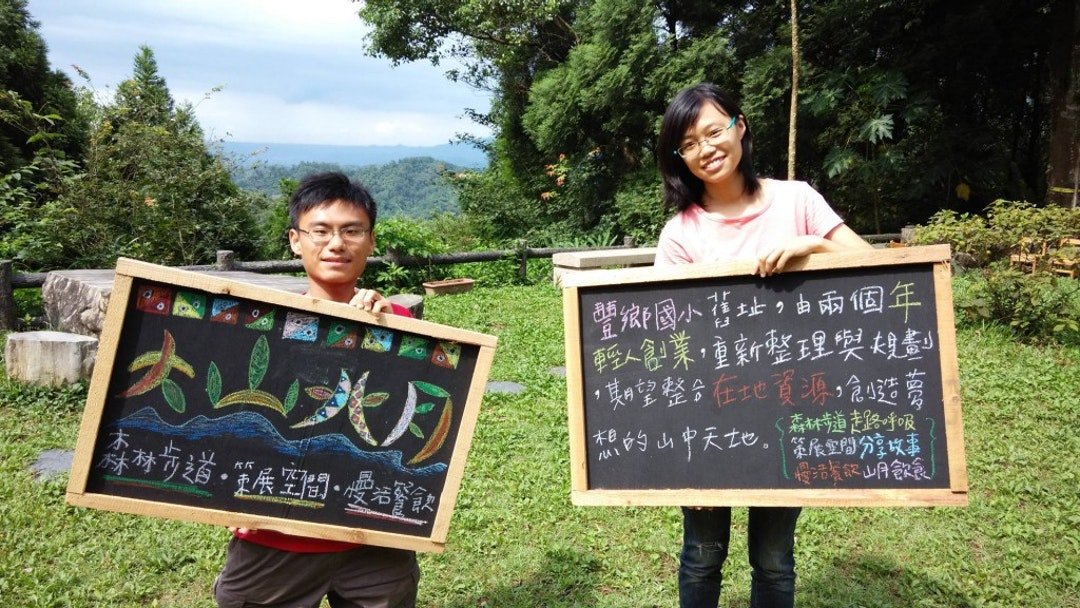 森林步道・策展空間・慢活餐飲
豐鄉國小舊址，由兩個年
輕人創業，重新整理與規劃
，期望整合在地資源，創造夢
想的山中天地。
森林步道走路呼吸
策展空間分享故事
慢活餐飲山月飲食